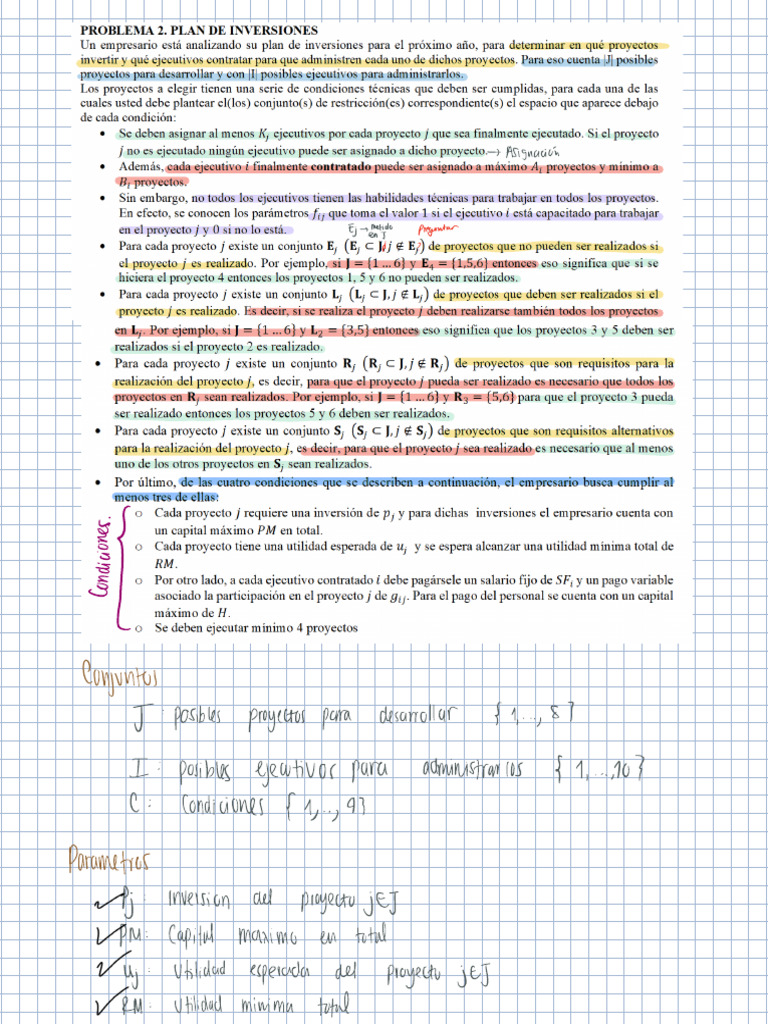 PROBLEMA 2. PLAN DE INVERSIONES
Un empresario está analizando su plan de inversiones para el próximo año, para determinar en qué proyectos
invertir y qué ejecutivos contratar para que administren cada uno de dichos proyectos. Para eso cuenta |J| posibles
proyectos para desarrollar y con |I| posibles ejecutivos para administrarlos.
Los proyectos a elegir tienen una serie de condiciones técnicas que deben ser cumplidas, para cada una de las
cuales usted debe plantear el(los) conjunto(s) de restricción(es) correspondiente(s) el espacio que aparece debajo
de cada condición:
• Se deben asignar al menos Kj ejecutivos por cada proyecto j que sea finalmente ejecutado. Si el proyecto
j no es ejecutado ningún ejecutivo puede ser asignado a dicho proyecto. → Asignación
• Además, cada ejecutivo i finalmente contratado puede ser asignado a máximo Ai proyectos y minimo a
Bi proyectos.
• Sin embargo, no todos los ejecutivos tienen las habilidades técnicas para trabajar en todos los proyectos.
En efecto, se conocen los parámetros fij que toma el valor 1 si el ejecutivo i está capacitado para trabajar
en el proyecto j y 0 si no lo está.
Ej → metido en J Preguntar
• Para cada proyecto j existe un conjunto Ej (Ej ⊂ J, j ∉ Ej) de proyectos que no pueden ser realizados si
el proyecto j es realizado. Por ejemplo, si J = {1 … 6} y E4 = {1,5,6} entonces eso significa que si se
hiciera el proyecto 4 entonces los proyectos 1, 5 y 6 no pueden ser realizados.
• Para cada proyecto j existe un conjunto Lj (Lj ⊂ J, j ∉ Lj) de proyectos que deben ser realizados si el
proyecto j es realizado. Es decir, si se realiza el proyecto j deben realizarse también todos los proyectos
en Lj. Por ejemplo, si J = {1 … 6} y L2 = {3,5} entonces eso significa que los proyectos 3 y 5 deben ser
realizados si el proyecto 2 es realizado.
• Para cada proyecto j existe un conjunto Rj (Rj ⊂ J, j ∉ Rj) de proyectos que son requisitos para la
realización del proyecto j, es decir, para que el proyecto j pueda ser realizado es necesario que todos los
proyectos en Rj sean realizados. Por ejemplo, si J = {1 … 6} y R3 = {5,6} para que el proyecto 3 pueda
ser realizado entonces los proyectos 5 y 6 deben ser realizados.
• Para cada proyecto j existe un conjunto Sj (Sj ⊂ J, j ∉ Sj) de proyectos que son requisitos alternativos
para la realización del proyecto j, es decir, para que el proyecto j sea realizado es necesario que al menos
uno de los otros proyectos en Sj sean realizados.
• Por último, de las cuatro condiciones que se describen a continuación, el empresario busca cumplir al
menos tres de ellas:
Condiciones.
o Cada proyecto j requiere una inversión de pj y para dichas inversiones el empresario cuenta con
un capital máximo PM en total.
o Cada proyecto tiene una utilidad esperada de uj y se espera alcanzar una utilidad minima total de
RM.
o Por otro lado, a cada ejecutivo contratado i debe pagársele un salario fijo de SFi y un pago variable
asociado la participación en el proyecto j de gij. Para el pago del personal se cuenta con un capital
máximo de H.
o Se deben ejecutar mínimo 4 proyectos
Conjuntos
J: posibles proyectos para desarrollar {1,..., 8}
I: posibles ejecutivos para administrarlos {1,...,10}
C: Condiciones {1,..., 4}
Parametros
✓ Pj: Inversion del proyecto j∈J
✓ PM: Capital maximo en total
✓ Uj: Utilidad esperada del proyecto j∈J
✓ RM: Utilidad minima total